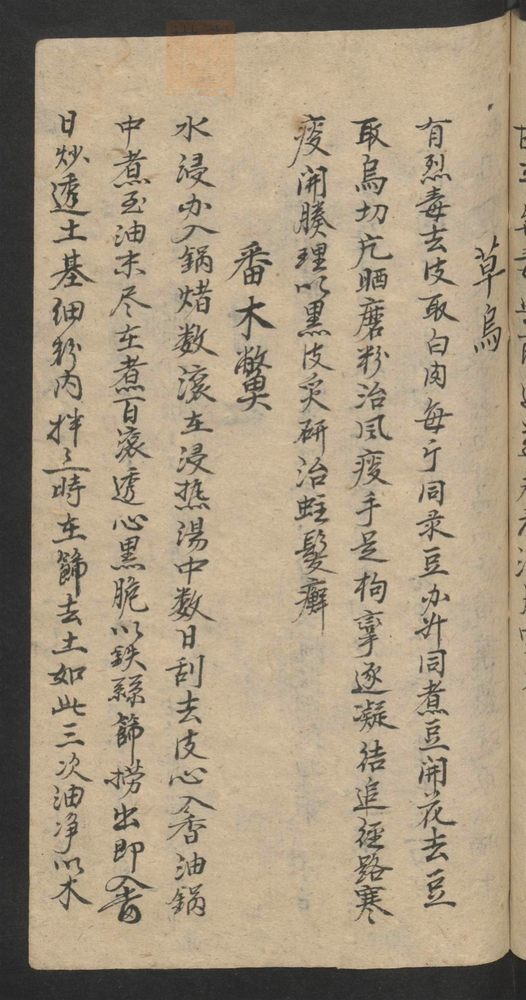 草烏
有烈毒去皮取白肉每斤同彔豆办升同煮豆開花去豆
取烏切片晒磨粉治風痰手足拘攣逐凝结追徑路寒
痰開腠理以黑皮炙研治蛀髮癬
番木鱉
水浸办入鍋煮数滚在浸热湯中数日刮去皮心入香油鍋
中煮至油末尽在煮百滚透心黑脆以鉄絲篩撈出即入
日炒透土基细粉内拌三時在篩去土如此三次油净以木